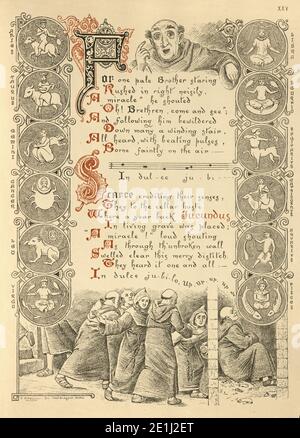 XXV
For one pale Brother staring
Rushed in right noisily,
"A miracle" he shouted
"Oh! Brethren, come and see";
And following him bewildered
Down many a winding stair,
All heard, with beating pulses,
Borne faintly on the air—
In dulce ju·bi···
Scarce crediting their senses,
They to the cellar hople
Where a year back Jucundus
In living grave was placed;
A miracle! loud shouting
As through th'unbroken wall
Swelled clear this merry distich
They heard it one and all—
In dulce jubi, lo, up, up, up, up
ARIES
TAURUS
GEMINI
CANCER
LEO
VIRGO
alamy
2E1J2ET